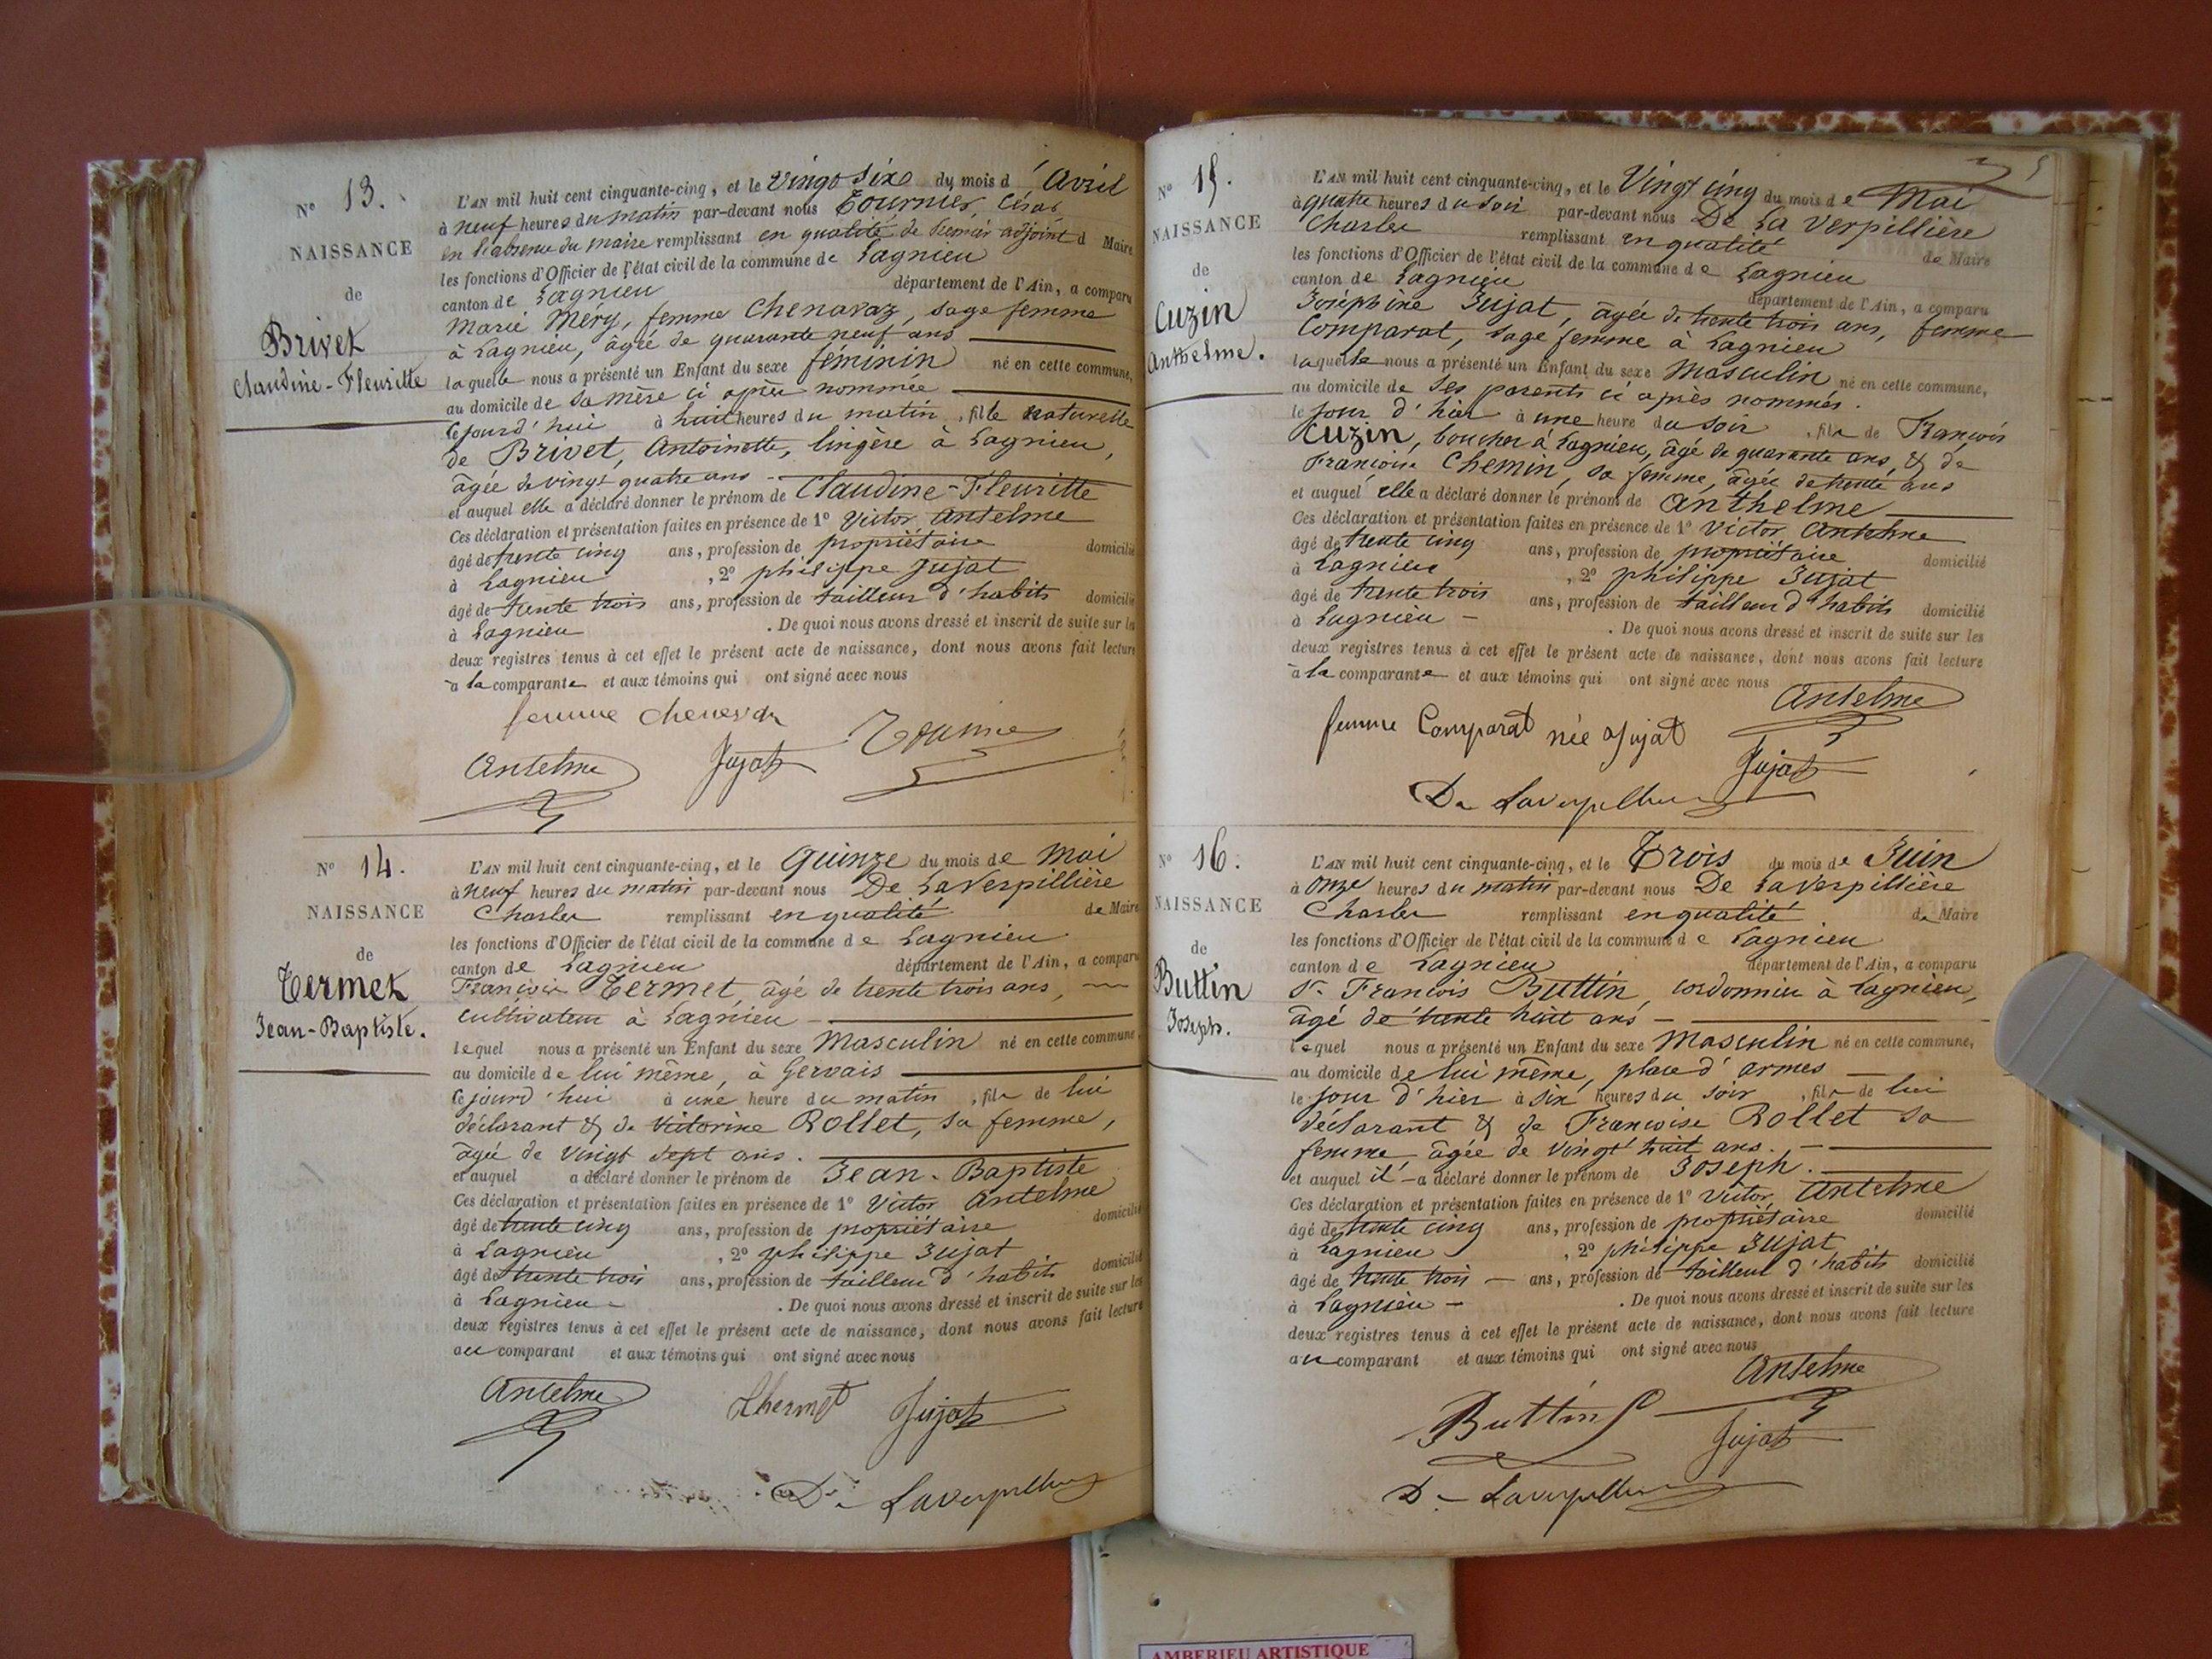 N° 13.
NAISSANCE
de
Brivet
Claudine-Fleuritte
L'AN mil huit cent cinquante-cinq, et le Vingt Six du mois d'Avril
à neuf heures du matin par-devant nous Tournier, César
en l'absence du maire remplissant en qualité de Premier adjoint d Maire
les fonctions d'Officier de l'état civil de la commune de Lagnieu
canton de Lagnieu département de l'Ain, a comparu
Marie Mery, femme Chenavaz, sage femme
à Lagnieu, âgée de quarante neuf ans
laquelle nous a présenté un Enfant du sexe féminin né en cette commune,
au domicile de sa mère ci après nommée
cejourd'hui à huit heures du matin, fille naturelle
de Brivet, Antoinette, lingère à Lagnieu,
âgée de vingt quatre ans
et auquel elle a déclaré donner le prénom de Claudine-Fleuritte
Ces déclaration et présentation faites en présence de 1° Victor Antelme
âgé de trente cinq ans, profession de propriétaire domicilié
à Lagnieu, 2° philippe Jujat
âgé de trente trois ans, profession de tailleur d'habits domicilié
à Lagnieu. De quoi nous avons dressé et inscrit de suite sur les
deux registres tenus à cet effet le présent acte de naissance, dont nous avons fait lecture
à la comparante et aux témoins qui ont signé avec nous
femme
Antelme Jujat
N° 14.
NAISSANCE
de
Termet
Jean-Baptiste.
L'AN mil huit cent cinquante-cinq, et le Quinze du mois de Mai
à neuf heures du matin par-devant nous De LaVerpillière
Charles remplissant en qualité de Maire
les fonctions d'Officier de l'état civil de la commune de Lagnieu
canton de Lagnieu département de l'Ain, a comparu
François Termet, âgé de trente trois ans,
cultivateur à Lagnieu
lequel nous a présenté un Enfant du sexe Masculin né en cette commune,
au domicile de lui même, à Gervais
cejourd'hui à une heure du matin, fils de lui
déclarant & de Victorine Rollet, sa femme,
âgée de vingt sept ans.
et auquel a déclaré donner le prénom de Jean-Baptiste
Ces déclaration et présentation faites en présence de 1° Victor Antelme
âgé de trente cinq ans, profession de propriétaire domicilié
à Lagnieu, 2° philippe Jujat
âgé de trente trois ans, profession de tailleur d'habits domicilié
à Lagnieu. De quoi nous avons dressé et inscrit de suite sur les
deux registres tenus à cet effet le présent acte de naissance, dont nous avons fait lecture
au comparant et aux témoins qui ont signé avec nous
Antelme Thermet Jujat
De Laverpilliere
N° 15.
NAISSANCE
de
Cuzin
Anthelme.
L'AN mil huit cent cinquante-cinq, et le Vingt cinq du mois de Mai
à quatre heures du soir par-devant nous De La Verpillière
Charles remplissant en qualité de Maire
les fonctions d'Officier de l'état civil de la commune de Lagnieu
canton de Lagnieu département de l'Ain, a comparu
Joséphine Jujat, âgée de trente trois ans, femme
Comparat, sage femme à Lagnieu
laquelle nous a présenté un Enfant du sexe Masculin né en cette commune,
au domicile de ses parents ci après nommés.
le jour d'hier à une heure du soir, fils de François
Cuzin, boucher à Lagnieu, âgé de quarante ans, & de
Françoise Chemin, sa femme, âgée de trente ans
et auquel elle a déclaré donner le prénom de Anthelme
Ces déclaration et présentation faites en présence de 1° Victor Antelme
âgé de trente cinq ans, profession de propriétaire domicilié
à Lagnieu, 2° philippe Jujat
âgé de trente trois ans, profession de tailleur d'habits domicilié
à Lagnieu. De quoi nous avons dressé et inscrit de suite sur les
deux registres tenus à cet effet le présent acte de naissance, dont nous avons fait lecture
à la comparante et aux témoins qui ont signé avec nous
Antelme
femme Comparat née Jujat
Jujat
De Laverpilliere
N° 16.
NAISSANCE
de
Buttin
Joseph.
L'AN mil huit cent cinquante-cinq, et le Trois du mois de Juin
à onze heures du matin par-devant nous De LaVerpillière
Charles remplissant en qualité de Maire
les fonctions d'Officier de l'état civil de la commune de Lagnieu
canton de Lagnieu département de l'Ain, a comparu
Sr. François Buttin, cordonnier à Lagnieu,
âgé de trente huit ans
lequel nous a présenté un Enfant du sexe Masculin né en cette commune,
au domicile de lui même, place d'armes
le jour d'hier à six heures du soir, fils de lui
déclarant & de Françoise Rollet sa
femme âgée de vingt huit ans.
et auquel il a déclaré donner le prénom de Joseph.
Ces déclaration et présentation faites en présence de 1° Victor Antelme
âgé de trente cinq ans, profession de propriétaire domicilié
à Lagnieu, 2° philippe Jujat
âgé de trente trois ans, profession de tailleur d'habits domicilié
à Lagnieu. De quoi nous avons dressé et inscrit de suite sur les
deux registres tenus à cet effet le présent acte de naissance, dont nous avons fait lecture
au comparant et aux témoins qui ont signé avec nous
Antelme
Buttin
Jujat
De Laverpilliere
AMBERIEU ARTISTIQUE